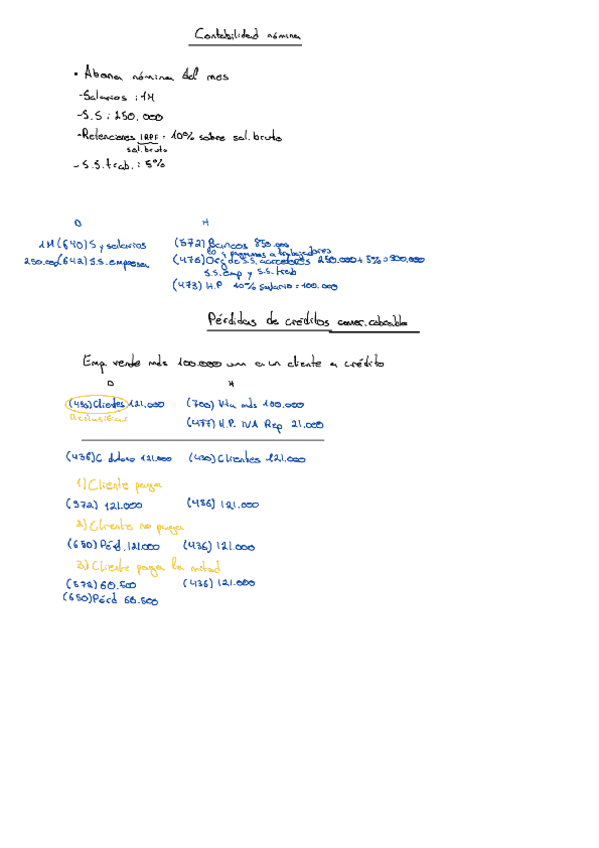 Contabilidad nómina
• Abona nómina del mes
- Salarios : 1M
- S.S : 250.000
- Retenciones IRPF · 10% sobre sal. bruto
sal. bruto
- S.S. trab. : 5%
D H
1M (640) S y salarios (572) Bancos 850.000
pagamos a trabajadores
250.000 (642) S.S. empresa (476) Org de S.S. acreedores 250.000 + 5% = 300.000
S.S. emp y S.S. trab
(473) H.P 10% salario = 100.000
Pérdidas de créditos comer. cobrables
Emp. vende mds 100.000 um a un cliente a crédito
D H
(430) Clientes 121.000 (700) Vta mds 100.000
Reclasificar (477) H.P. IVA Rep 21.000
(436) C dudoso 121.000 (430) Clientes 121.000
1) Cliente paga
(572) 121.000 (436) 121.000
2) Cliente no paga
(650) Pérd. 121.000 (436) 121.000
3) Cliente paga la mitad
(572) 60.500 (436) 121.000
(650) Pérd 60.500